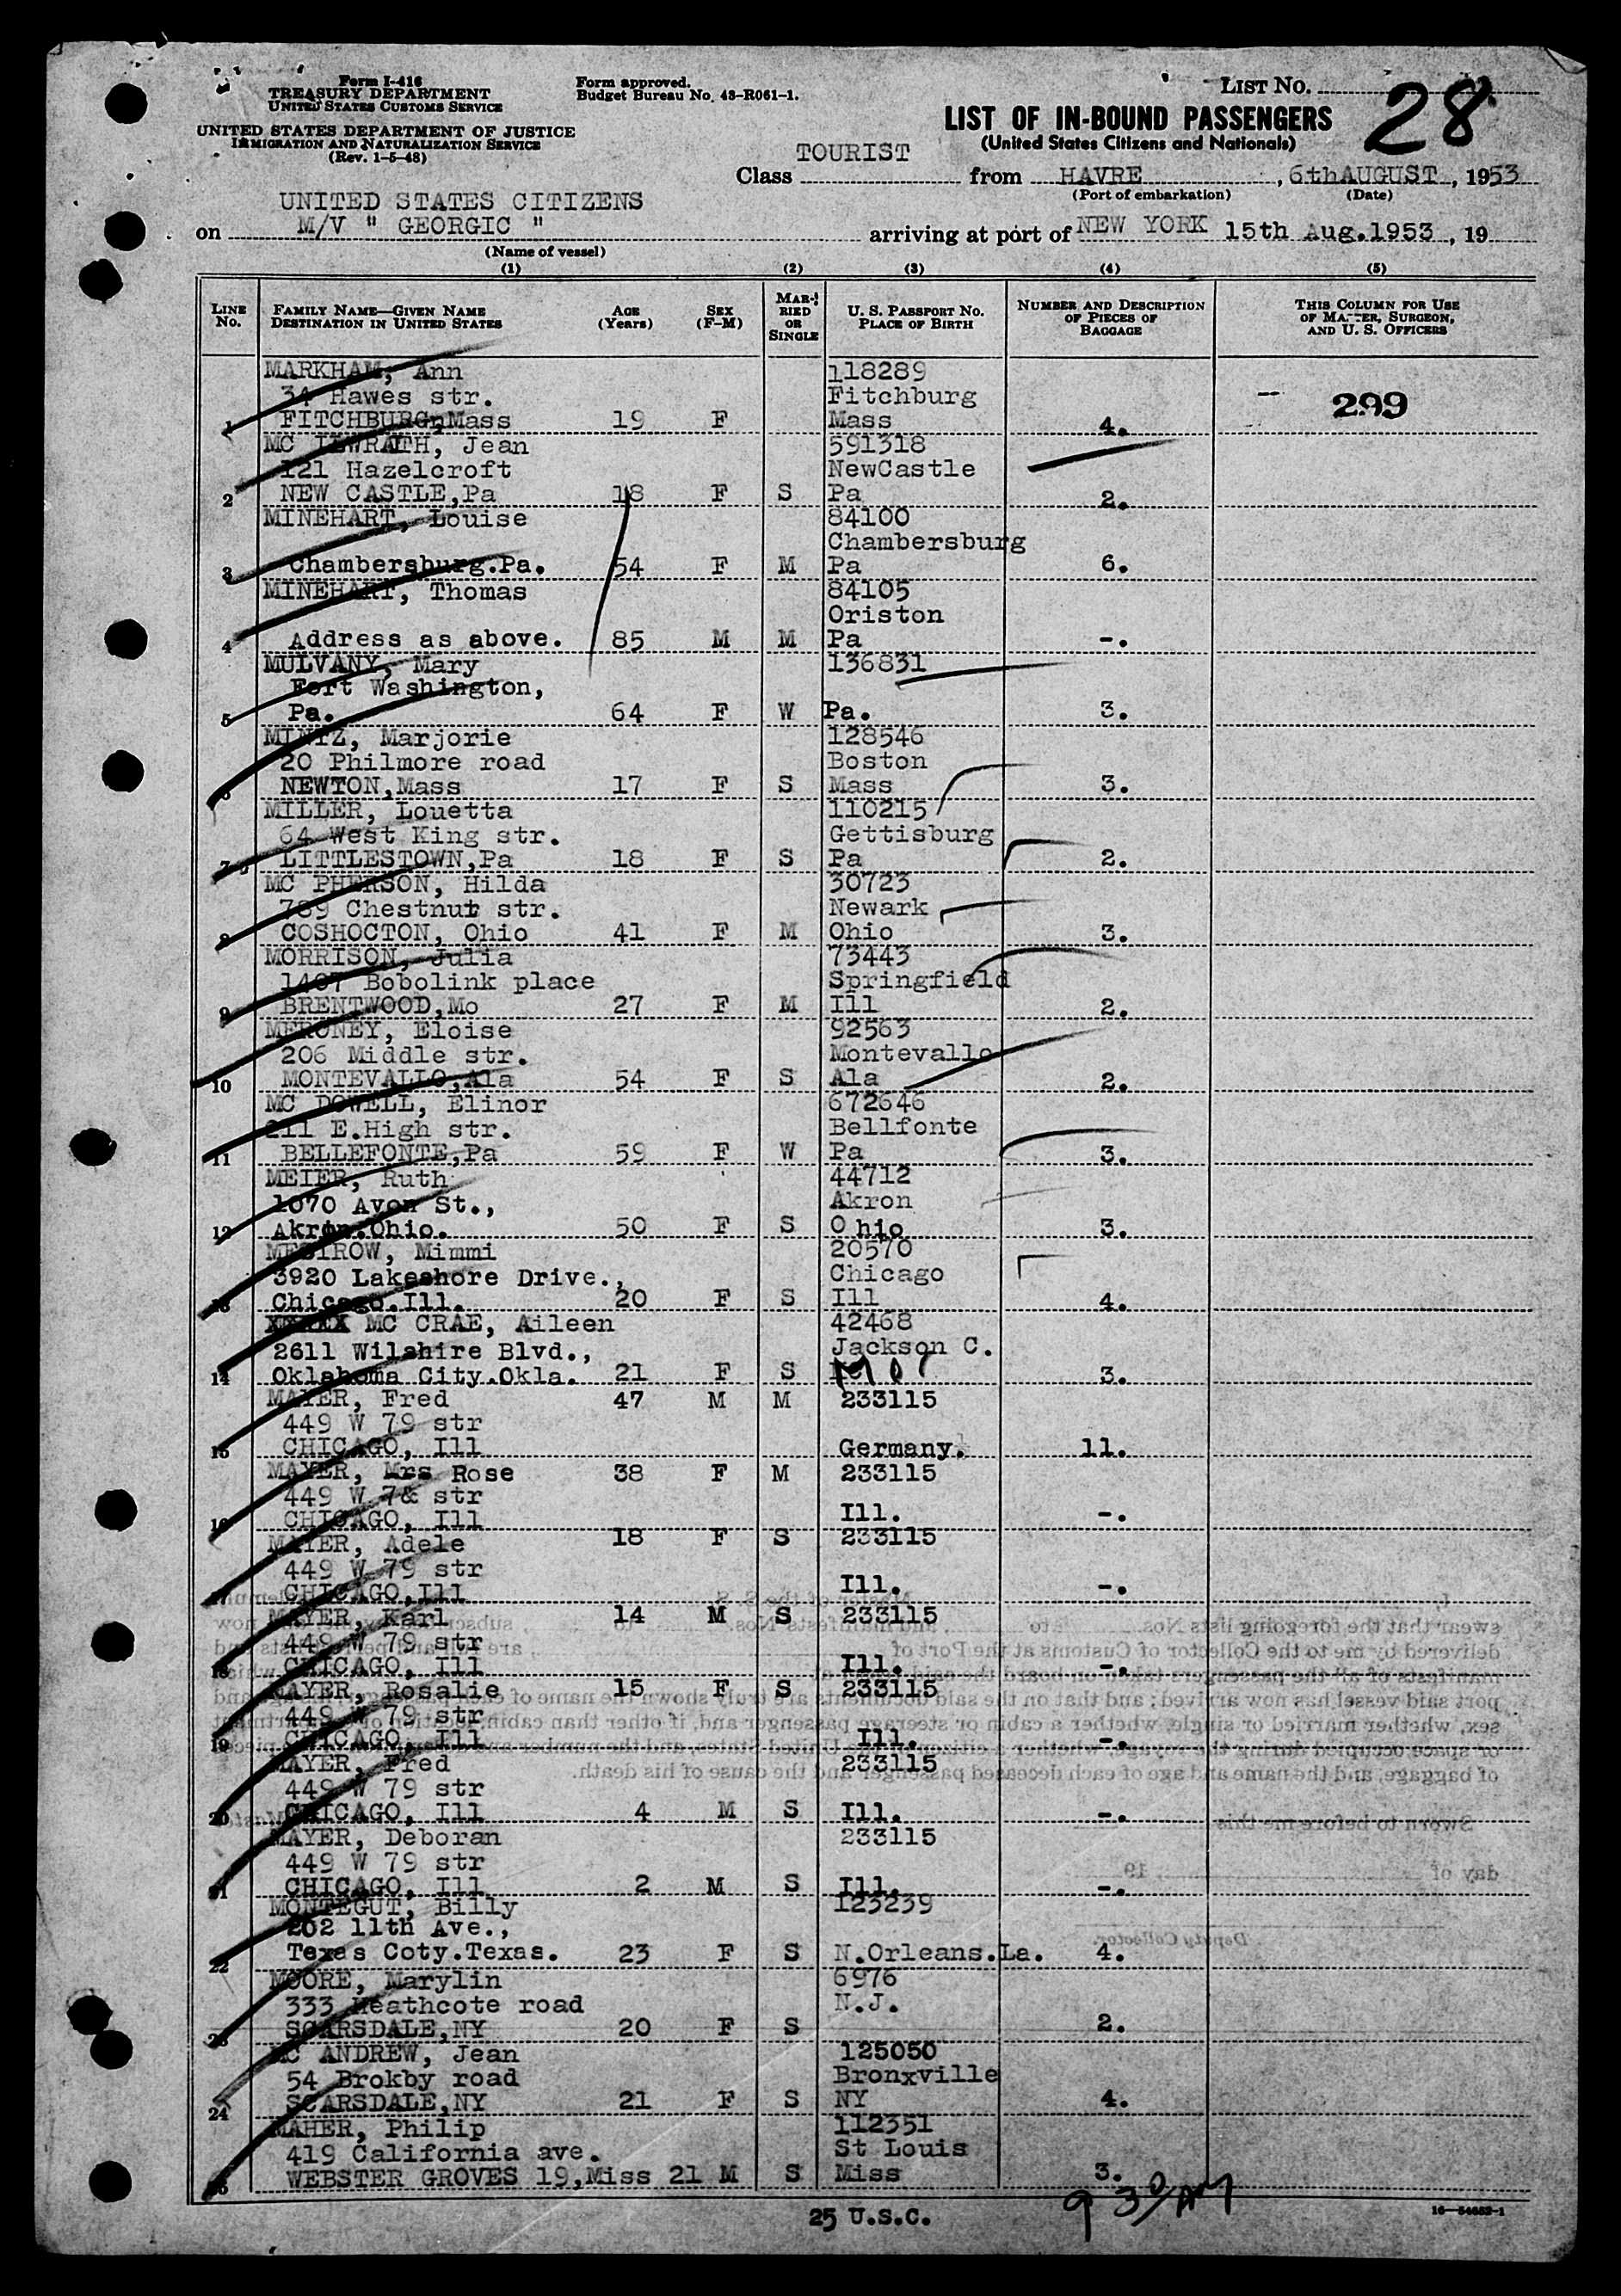 Form I-416
TREASURY DEPARTMENT
UNITED STATES CUSTOMS SERVICE
UNITED STATES DEPARTMENT OF JUSTICE
IMMIGRATION AND NATURALIZATION SERVICE
(Rev. 1-5-48)
Form approved.
Budget Bureau No. 43-R061-1.
LIST NO. 28
LIST OF IN-BOUND PASSENGERS
(United States Citizens and Nationals)
Class TOURIST from HAVRE, 6thAUGUST, 1953
(Port of embarkation) (Date)
UNITED STATES CITIZENS
on M/V " GEORGIC " arriving at port of NEW YORK 15th Aug.1953, 19
(Name of vessel)
(1) (2) (3) (4) (5)
LINE NO. FAMILY NAME—GIVEN NAME DESTINATION IN UNITED STATES AGE (Years) SEX (F-M) MARRIED OR SINGLE U. S. PASSPORT NO. PLACE OF BIRTH NUMBER AND DESCRIPTION OF PIECES OF BAGGAGE THIS COLUMN FOR USE OF MASTER, SURGEON, AND U. S. OFFICERS
MARKHAM, Ann 118289
34 Hawes str. Fitchburg — 299
1 FITCHBURG,Mass 19 F Mass 4.
MC ILWRATH, Jean 591318
121 Hazelcroft NewCastle
2 NEW CASTLE,Pa 18 F S Pa 2.
MINEHART, Louise 84100
Chambersburg
3 Chambersburg.Pa. 54 F M Pa 6.
MINEHART, Thomas 84105
Oriston
4 Address as above. 85 M M Pa -.
MULVANY, Mary 136831
Fort Washington,
5 Pa. 64 F W Pa. 3.
MINTZ, Marjorie 128546
20 Philmore road Boston
6 NEWTON,Mass 17 F S Mass 3.
MILLER, Louetta 110215
64 West King str. Gettisburg
7 LITTLESTOWN,Pa 18 F S Pa 2.
MC PHERSON, Hilda 30723
789 Chestnut str. Newark
8 COSHOCTON, Ohio 41 F M Ohio 3.
MORRISON, Julia 73443
1407 Bobolink place Springfield
9 BRENTWOOD,Mo 27 F M Ill 2.
MERONEY, Eloise 92563
206 Middle str. Montevallo
10 MONTEVALLO,Ala 54 F S Ala 2.
MC DOWELL, Elinor 672646
211 E.High str. Bellfonte
11 BELLEFONTE,Pa 59 F W Pa 3.
MEIER, Ruth 44712
1070 Avon St., Akron
12 Akron.Ohio. 50 F S O hio 3.
MESIROW, Mimmi 20570
3920 Lakeshore Drive., Chicago
13 Chicago.Ill. 20 F S Ill 4.
MC CRAE, Aileen 42468
2611 Wilshire Blvd., Jackson C.
14 Oklahoma City.Okla. 21 F S Mo 3.
MAYER, Fred 47 M M 233115
449 W 79 str
15 CHICAGO, Ill Germany. 11.
MAYER, Mrs Rose 38 F M 233115
449 W 7& str
16 CHICAGO, Ill Ill. -.
MAYER, Adele 18 F S 233115
449 W 79 str
17 CHICAGO,Ill Ill. -.
MAYER, Karl 14 M S 233115
449 W 79 str
18 CHICAGO, Ill Ill. -.
MAYER, Rosalie 15 F S 233115
449 W 79 str
19 CHICAGO, Ill Ill. -.
MAYER, Fred 233115
449 W 79 str
20 CHICAGO, Ill 4 M S Ill. -.
MAYER, Deboran 233115
449 W 79 str
21 CHICAGO, Ill 2 M S Ill. -.
MONTEGUT, Billy 123239
202 11th Ave.,
22 Texas Coty.Texas. 23 F S N.Orleans.La. 4.
MOORE, Marylin 6976
333 Heathcote road N.J.
23 SCARSDALE,NY 20 F S 2.
MC ANDREW, Jean 125050
54 Brokby road Bronxville
24 SCARSDALE,NY 21 F S NY 4.
MAHER, Philip 112351
419 California ave. St Louis
25 WEBSTER GROVES 19,Miss 21 M S Miss 3.
25 U.S.C. 9 30 AM 16—54652-1